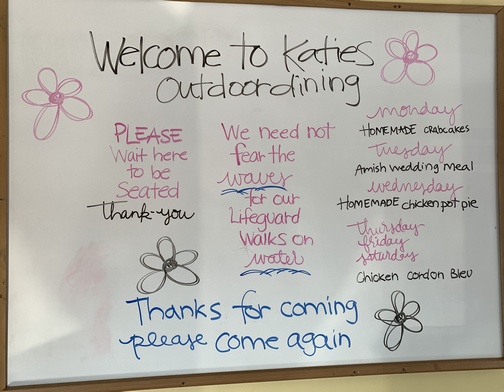 Welcome to Katies
Outdoordining
PLEASE
Wait here
to be
Seated
Thank-you
We need not
fear the
waves
for our
Lifeguard
Walks on
water
monday
HOMEMADE crabcakes
Tuesday
Amish wedding meal
wednesday
HOMEMADE chicken pot pie
thursday
friday
saturday
Chicken Cordon Bleu
Thanks for coming
please come again